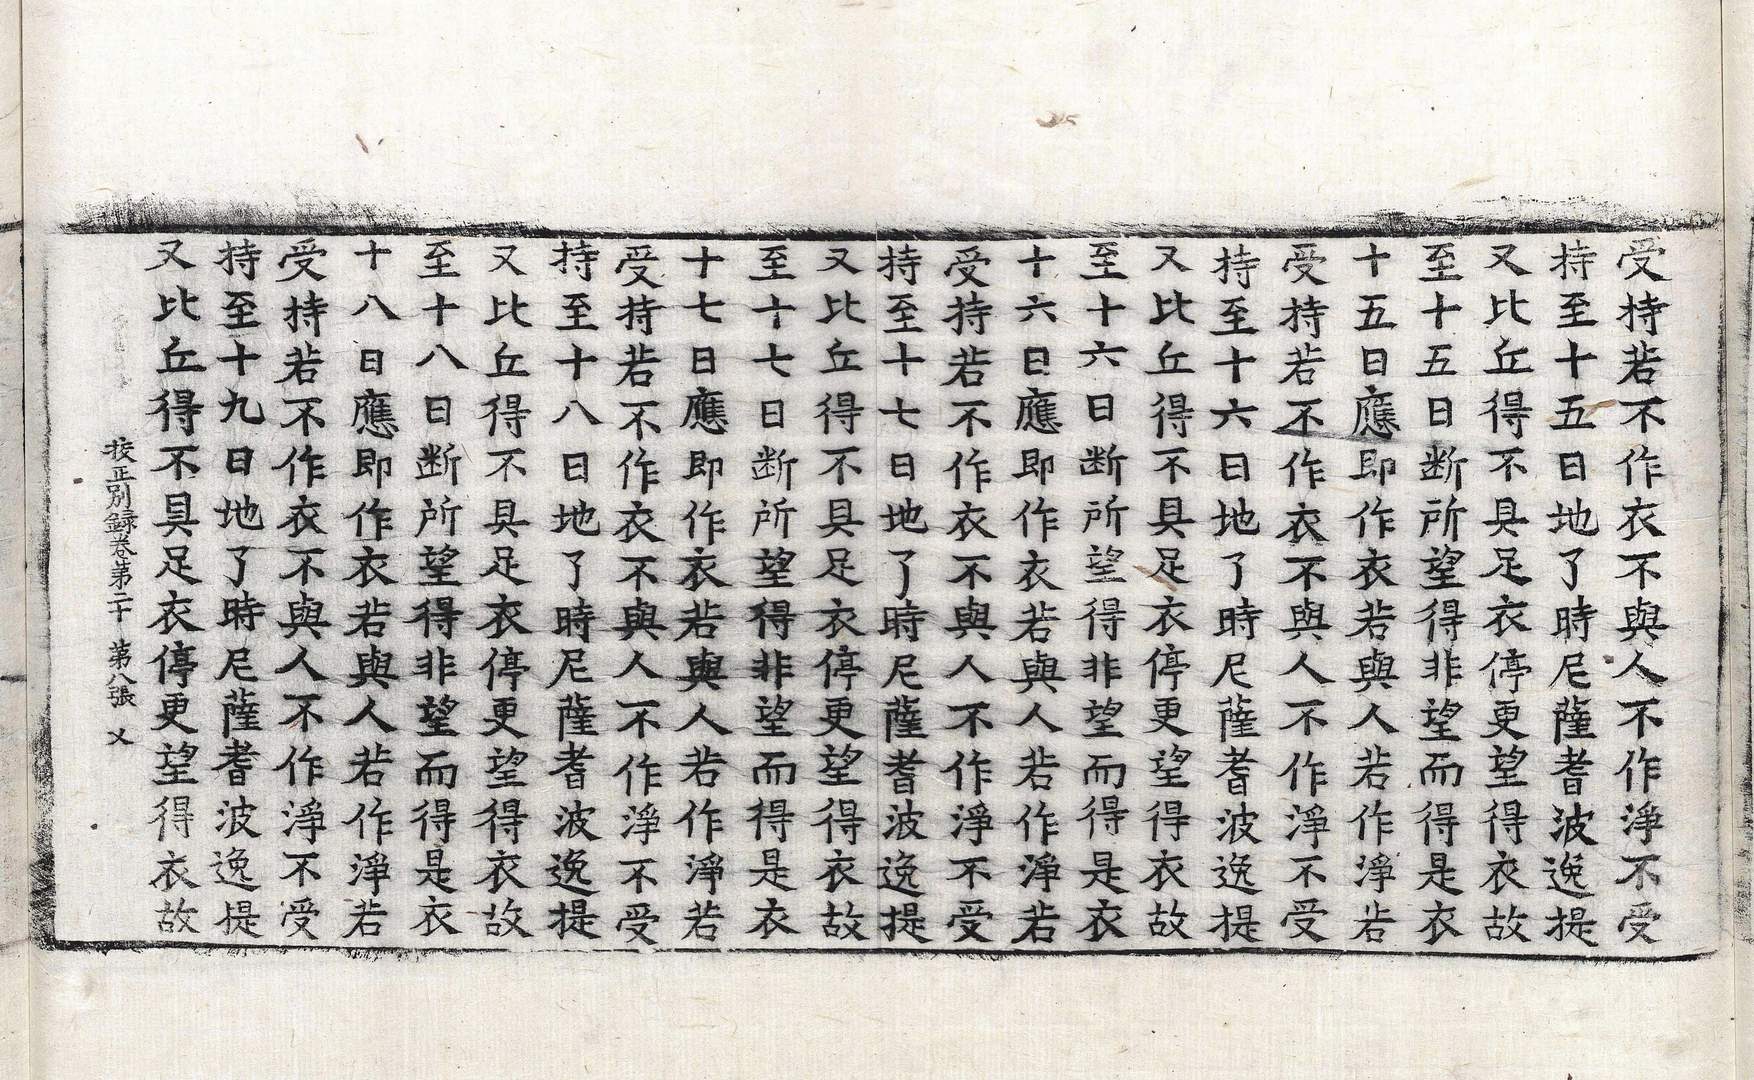 受持若不作衣不與人不作淨不受
持至十五日地了時尼薩耆波逸提
又比丘得不具足衣停更望得衣故
至十五日断所望得非望而得是衣
十五日應即作衣若與人若作淨若
受持若不作衣不與人不作淨不受
持至十六日地了時尼薩耆波逸提
又比丘得不具足衣停更望得衣故
至十六日断所望得非望而得是衣
十六日應即作衣若與人若作淨若
受持若不作衣不與人不作淨不受
持至十七日地了時尼薩耆波逸提
又比丘得不具足衣停更望得衣故
至十七日断所望得非望而得是衣
十七日應即作衣若與人若作淨若
受持若不作衣不與人不作淨不受
持至十八日地了時尼薩耆波逸提
又比丘得不具足衣停更望得衣故
至十八日断所望得非望而得是衣
十八日應即作衣若與人若作淨若
受持若不作衣不與人不作淨不受
持至十九日地了時尼薩耆波逸提
又比丘得不具足衣停更望得衣故
校正別録卷第二十 第八張 乂